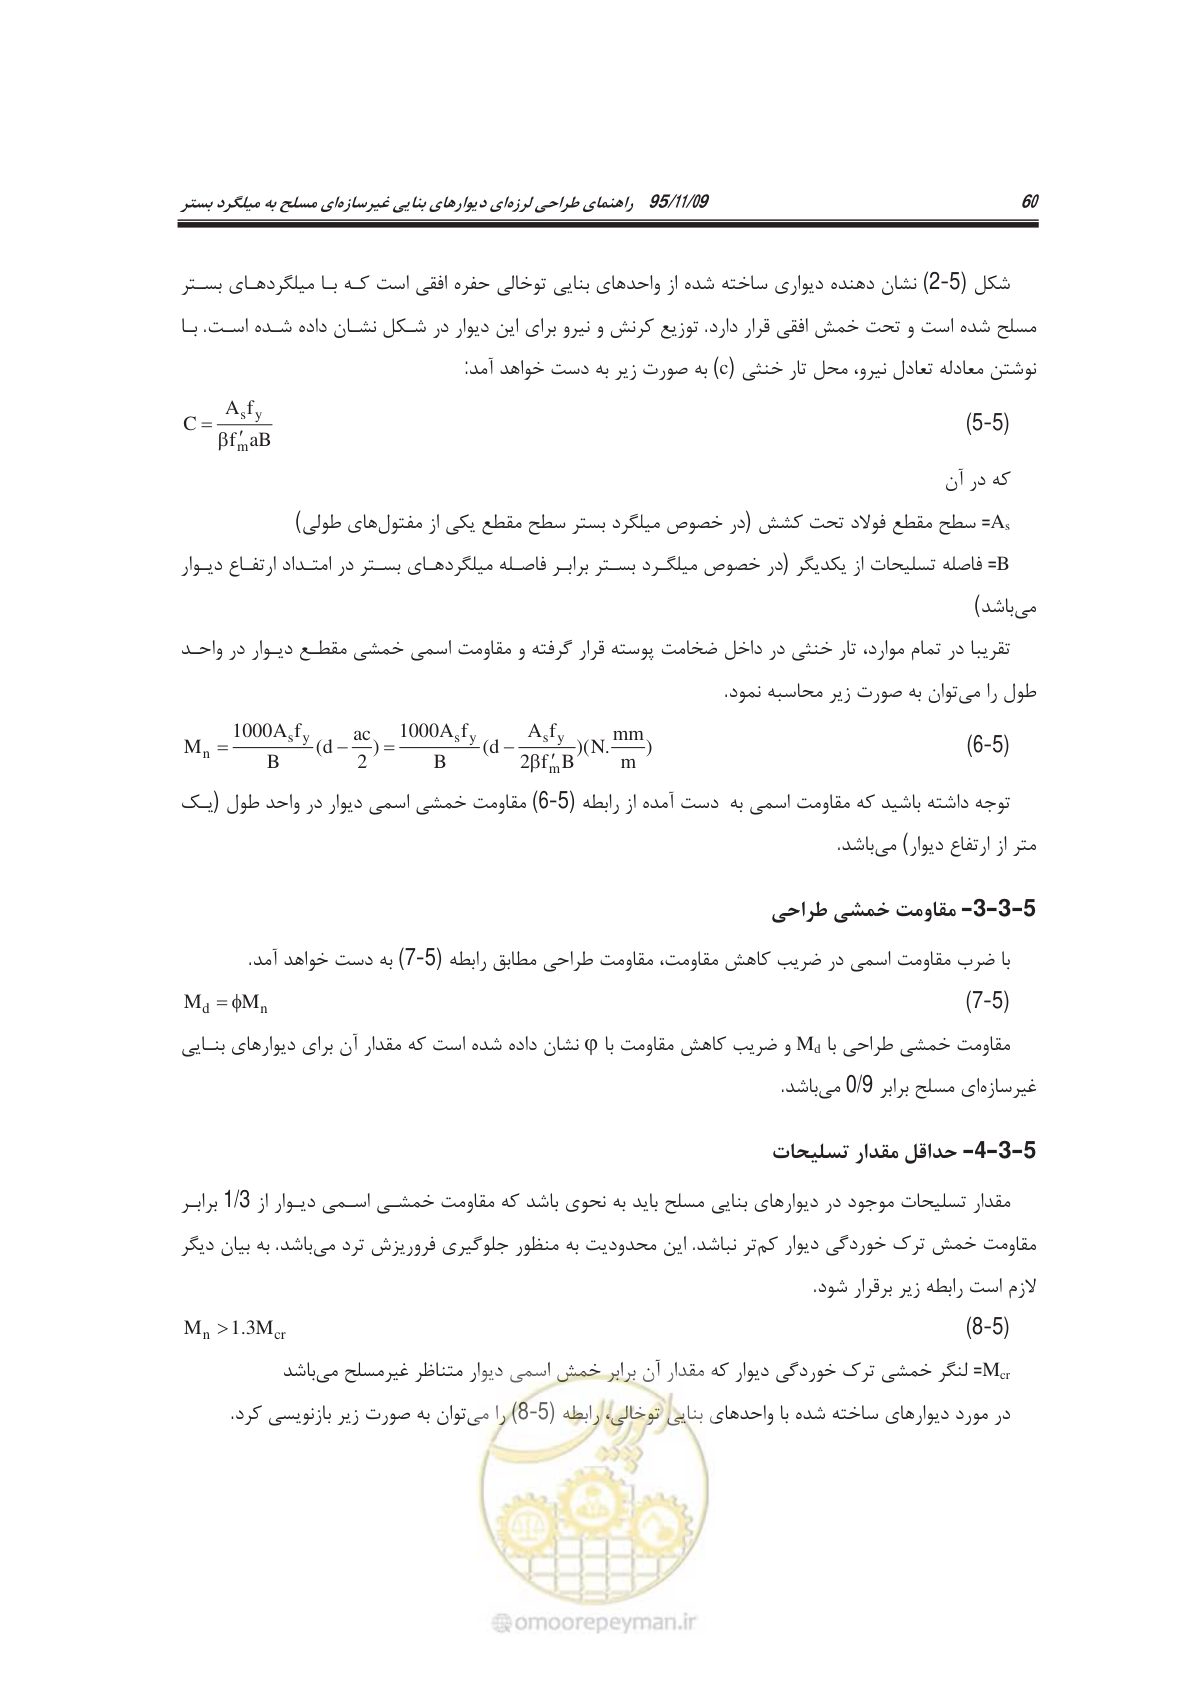 60 راهنمای طراحی لرزه‌ای دیوارهای بنایی غیرسازه‌ای مسلح به میلگرد بستر 95/11/09
شکل (5-2) نشان دهنده دیواری ساخته شده از واحدهای بنایی توخالی حفره افقی است که با میلگردهای بستر
مسلح شده است و تحت خمش افقی قرار دارد. توزیع کرنش و نیرو برای این دیوار در شکل نشان داده شده است. با
نوشتن معادله تعادل نیرو، محل تار خنثی (c) به صورت زیر به دست خواهد آمد:
(5-5) C = A_s f_y / β f′_m aB
که در آن
A_s= سطح مقطع فولاد تحت کشش (در خصوص میلگرد بستر سطح مقطع یکی از مفتول‌های طولی)
B= فاصله تسلیحات از یکدیگر (در خصوص میلگرد بستر برابر فاصله میلگردهای بستر در امتداد ارتفاع دیوار
می‌باشد)
تقریبا در تمام موارد، تار خنثی در داخل ضخامت پوسته قرار گرفته و مقاومت اسمی خمشی مقطع دیوار در واحد
طول را می‌توان به صورت زیر محاسبه نمود.
(6-5) M_n = 1000A_s f_y / B (d − ac/2) = 1000A_s f_y / B (d − A_s f_y / 2β f′_m B)(N. mm/m)
توجه داشته باشید که مقاومت اسمی به دست آمده از رابطه (6-5) مقاومت خمشی اسمی دیوار در واحد طول (یک
متر از ارتفاع دیوار) می‌باشد.
5-3-3- مقاومت خمشی طراحی
با ضرب مقاومت اسمی در ضریب کاهش مقاومت، مقاومت طراحی مطابق رابطه (7-5) به دست خواهد آمد.
(7-5) M_d = ϕM_n
مقاومت خمشی طراحی با M_d و ضریب کاهش مقاومت با φ نشان داده شده است که مقدار آن برای دیوارهای بنایی
غیرسازه‌ای مسلح برابر 0/9 می‌باشد.
5-3-4- حداقل مقدار تسلیحات
مقدار تسلیحات موجود در دیوارهای بنایی مسلح باید به نحوی باشد که مقاومت خمشی اسمی دیوار از 1/3 برابر
مقاومت خمش ترک خوردگی دیوار کم‌تر نباشد. این محدودیت به منظور جلوگیری فروریزش ترد می‌باشد. به بیان دیگر
لازم است رابطه زیر برقرار شود.
(8-5) M_n > 1.3M_cr
M_cr= لنگر خمشی ترک خوردگی دیوار که مقدار آن برابر خمش اسمی دیوار متناظر غیرمسلح می‌باشد
در مورد دیوارهای ساخته شده با واحدهای بنایی توخالی، رابطه (8-5) را می‌توان به صورت زیر بازنویسی کرد.
امور پیمان
@omoorepeyman.ir